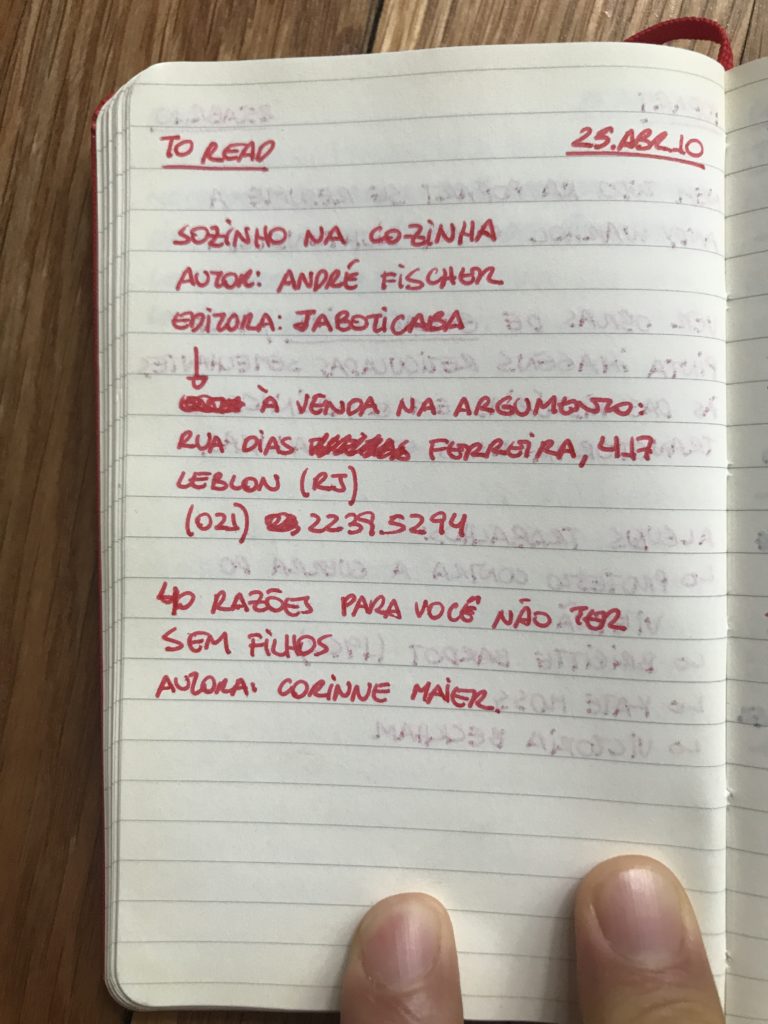 TO READ
25.ABR.10
SOZINHO NA COZINHA
AUTOR: ANDRÉ FISCHER
EDITORA: JABOTICABA
↓
À VENDA NA ARGUMENTO:
RUA DIAS FERREIRA, 417
LEBLON (RJ)
(021) 2239.5294
40 RAZÕES PARA VOCÊ NÃO TER
SEM FILHOS
AUTORA: CORINNE MAIER.